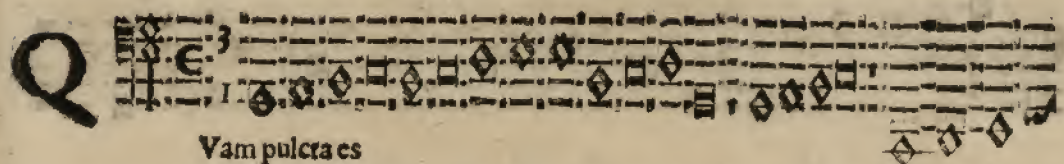 Q
3
1
Vam pulcra es